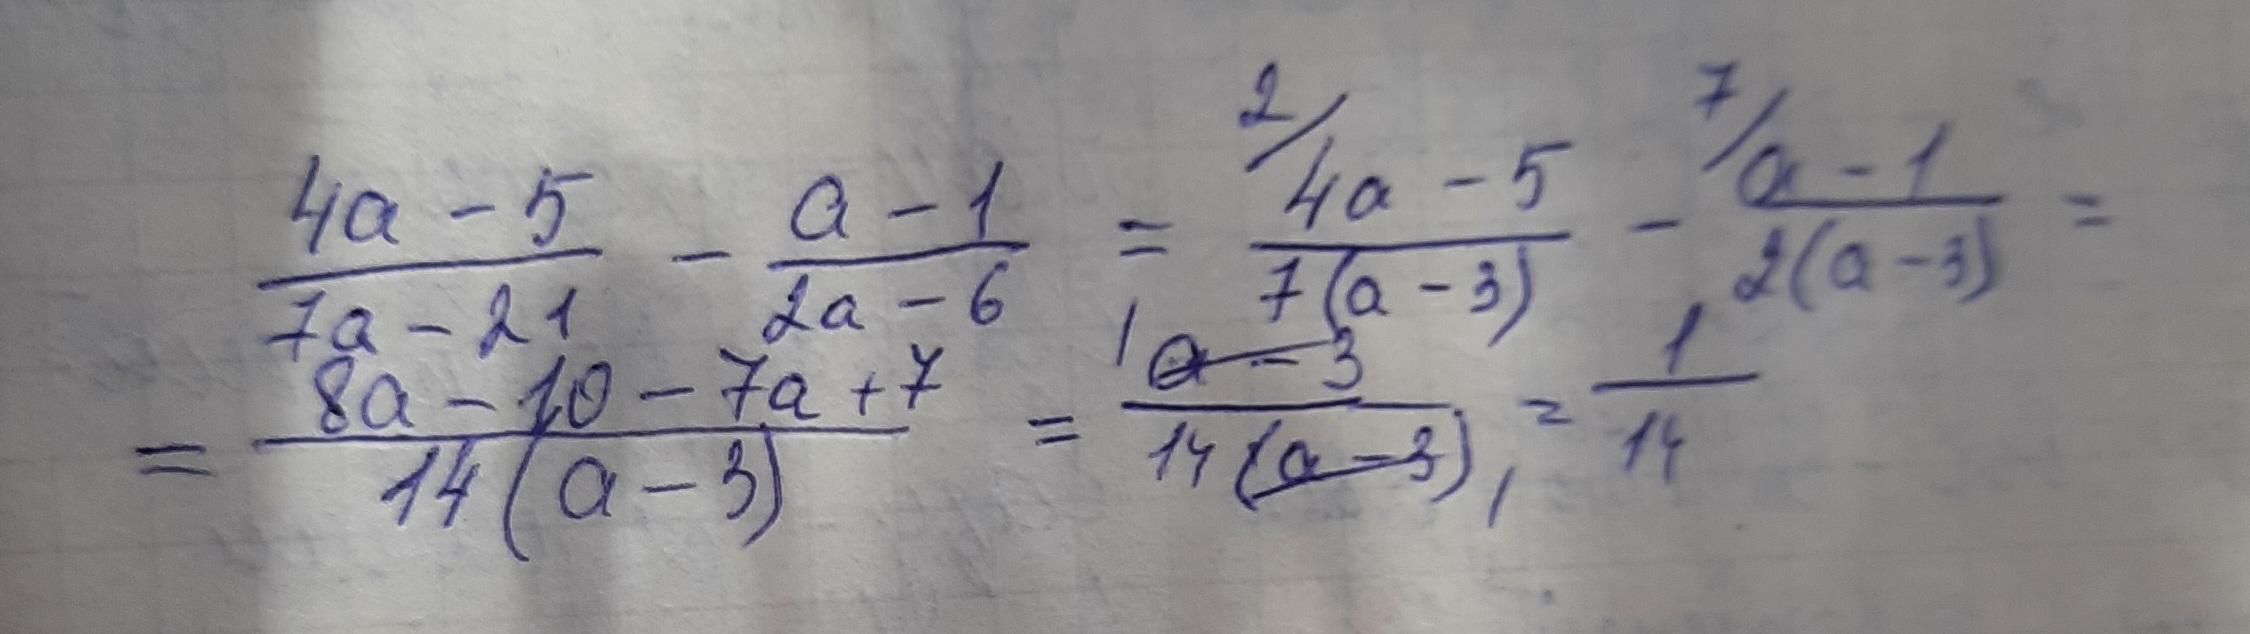 (4a - 5)/(7a - 21) - (a - 1)/(2a - 6) = 2/ (4a - 5)/(7(a - 3)) - 7/ (a - 1)/(2(a - 3)) =
= (8a - 10 - 7a + 7)/(14(a - 3)) = 1 (a - 3)/(14(a - 3)) 1 = 1/14